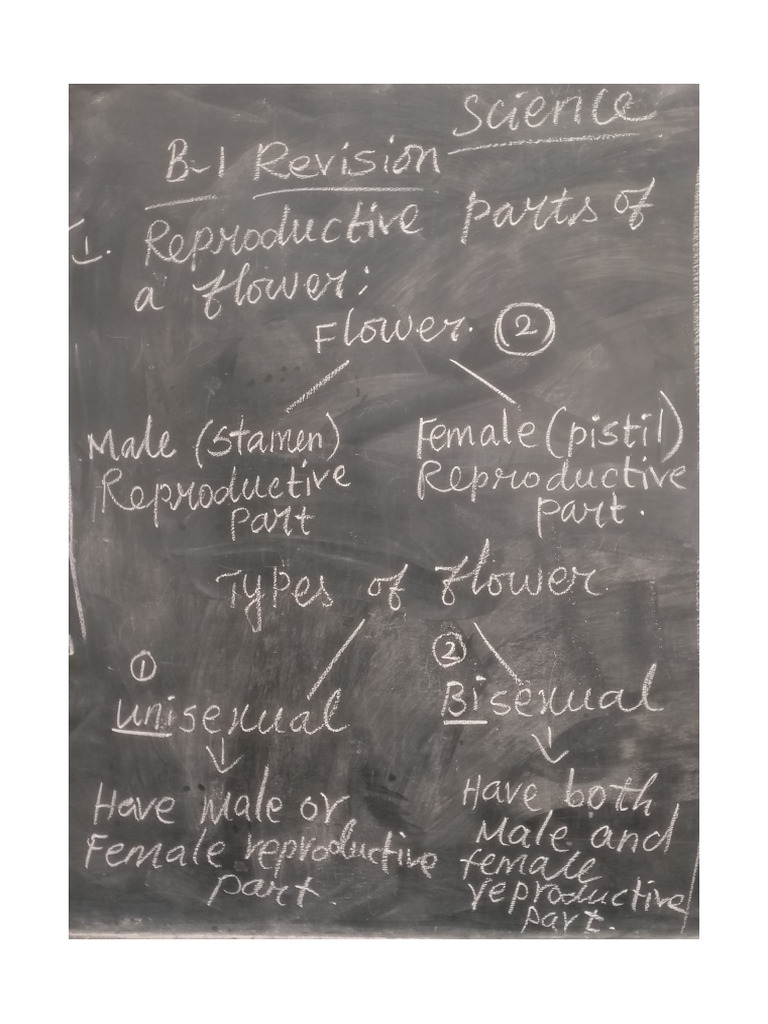 Science
B-1 Revision
1. Reproductive parts of
a flower:
Flower. 2
Male (Stamen)
Reproductive
Part
Female (pistil)
Reproductive
part.
Types of flower
1
unisexual
Have Male or
Female reproductive
part.
2
Bisexual
Have both
Male and
female
reproductive
part.